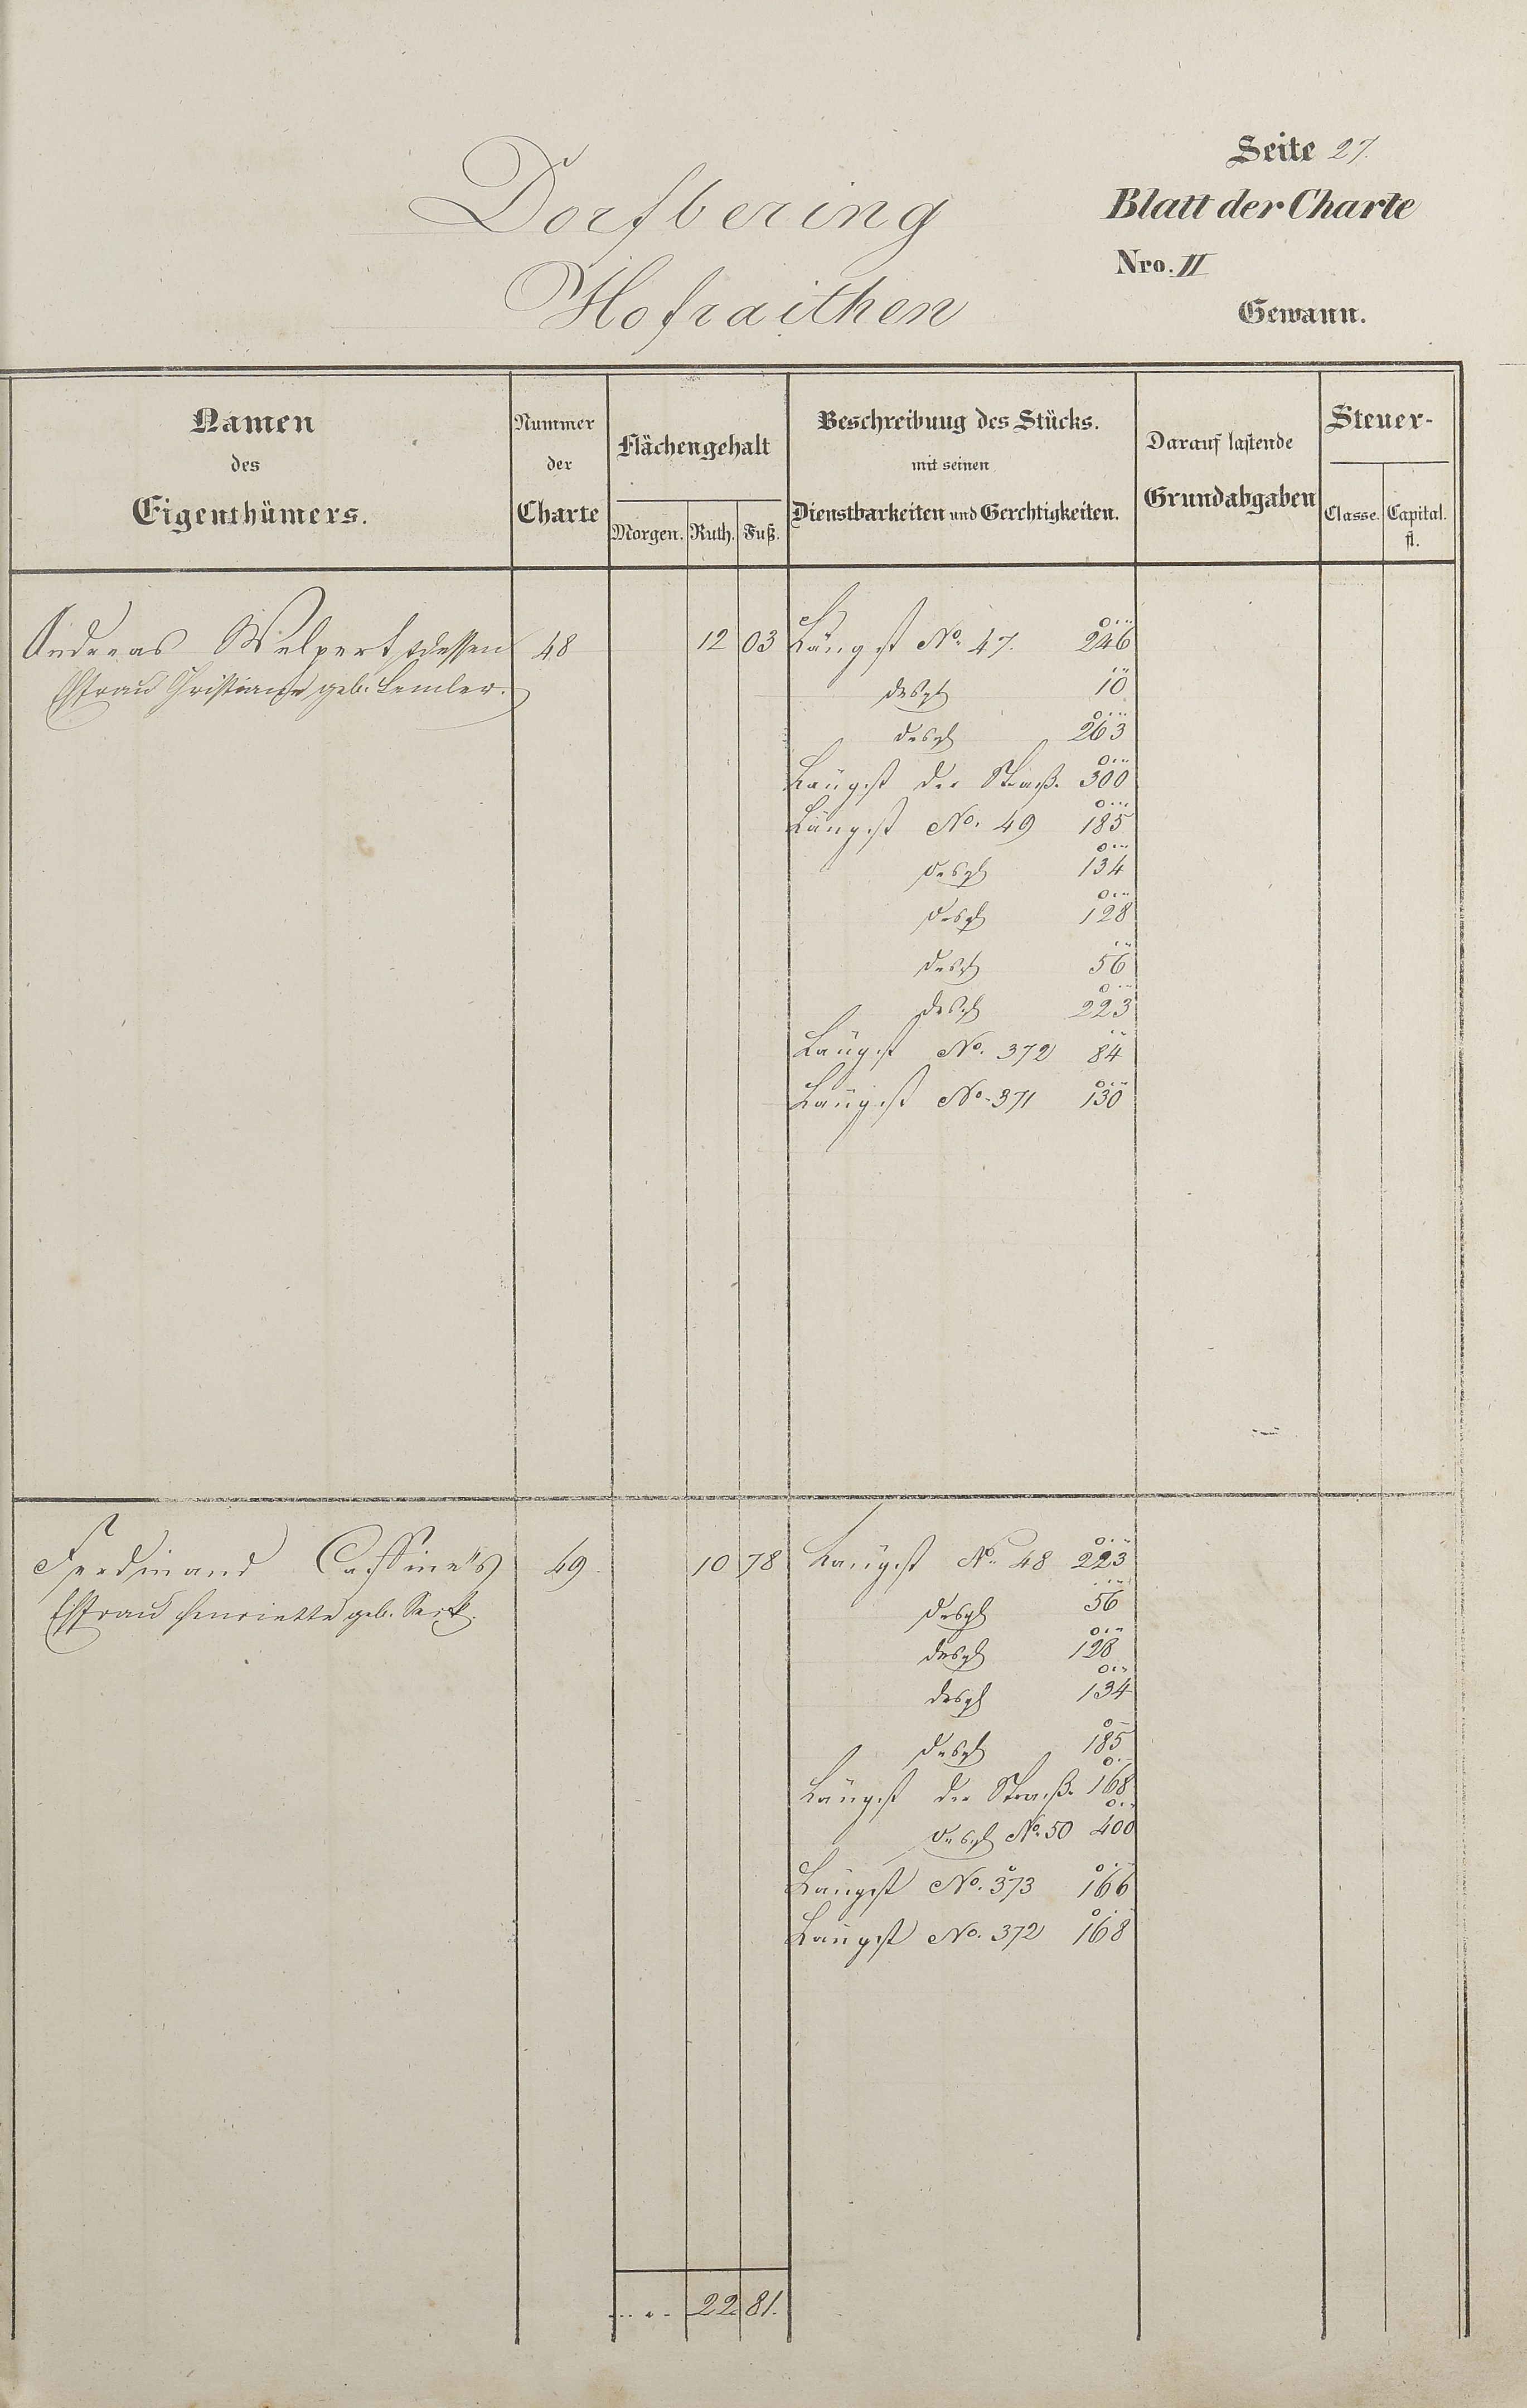 Seite 27.
Dorfbering
Blatt der Charte
Nro. II
Hofraithen
Gewann.
Namen
des
Eigenthümers.
Nummer
der
Charte
Flächengehalt
Morgen. Ruth. Fuß.
Beschreibung des Stücks.
mit seinen
Dienstbarkeiten und Gerechtigkeiten.
Darauf lastende
Grundabgaben
Steuer-
Classe. Capital.
fl.
Andreas Welpert u. dessen 48 12 03 Längst No. 47. 246
Ehfrau Christiane geb. Lemler. desgl 10
desgl 263
Längst der Straße 300
Längst No. 49 185
desgl 134
desgl 128
desgl 56
desgl 223
Längst No. 372 84
Längst No. 371 130
Ferdinand 49 10 78 Längst No. 48 223
Ehfrau Henriette geb. desgl 56
desgl 128
desgl 134
desgl 185
Längst der Straße 168
desgl No. 50 400
Längst No. 373 166
Längst No. 372 168
22 81.